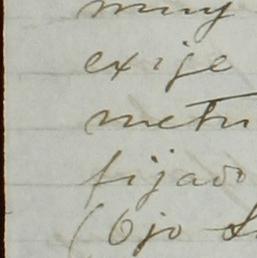 muy
exige
metri
fijado
(Ojo